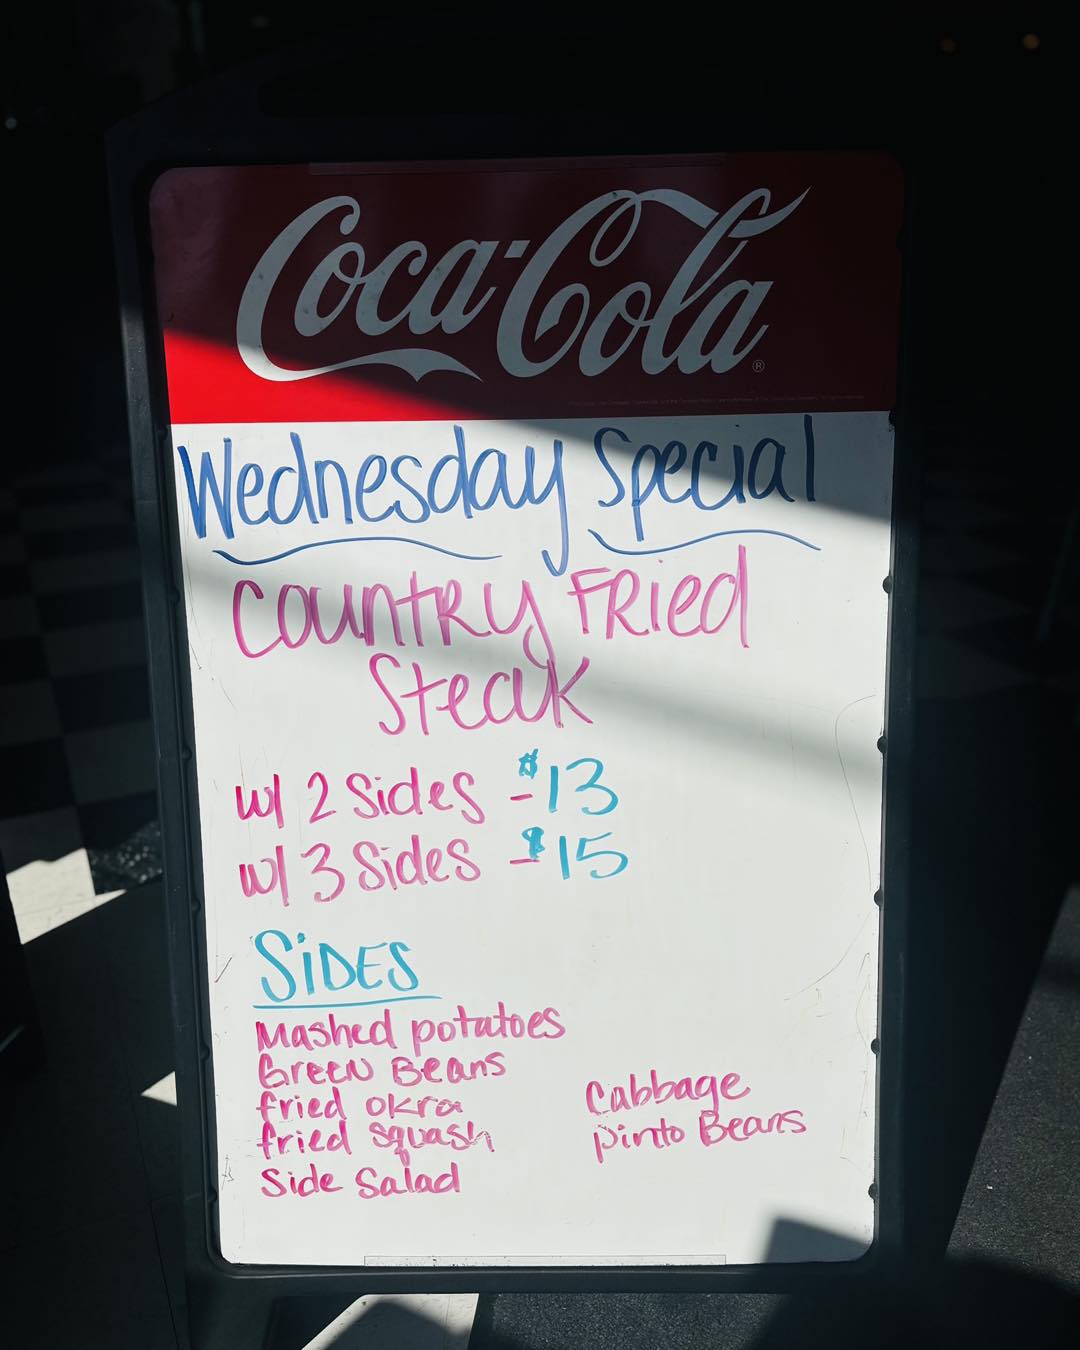 Coca-Cola
®
Wednesday Special
Country Fried
Steak
w/ 2 Sides - $13
w/ 3 Sides - $15
SiDES
Mashed potatoes
Green Beans
fried okra
fried squash
Side Salad
Cabbage
pinto Beans